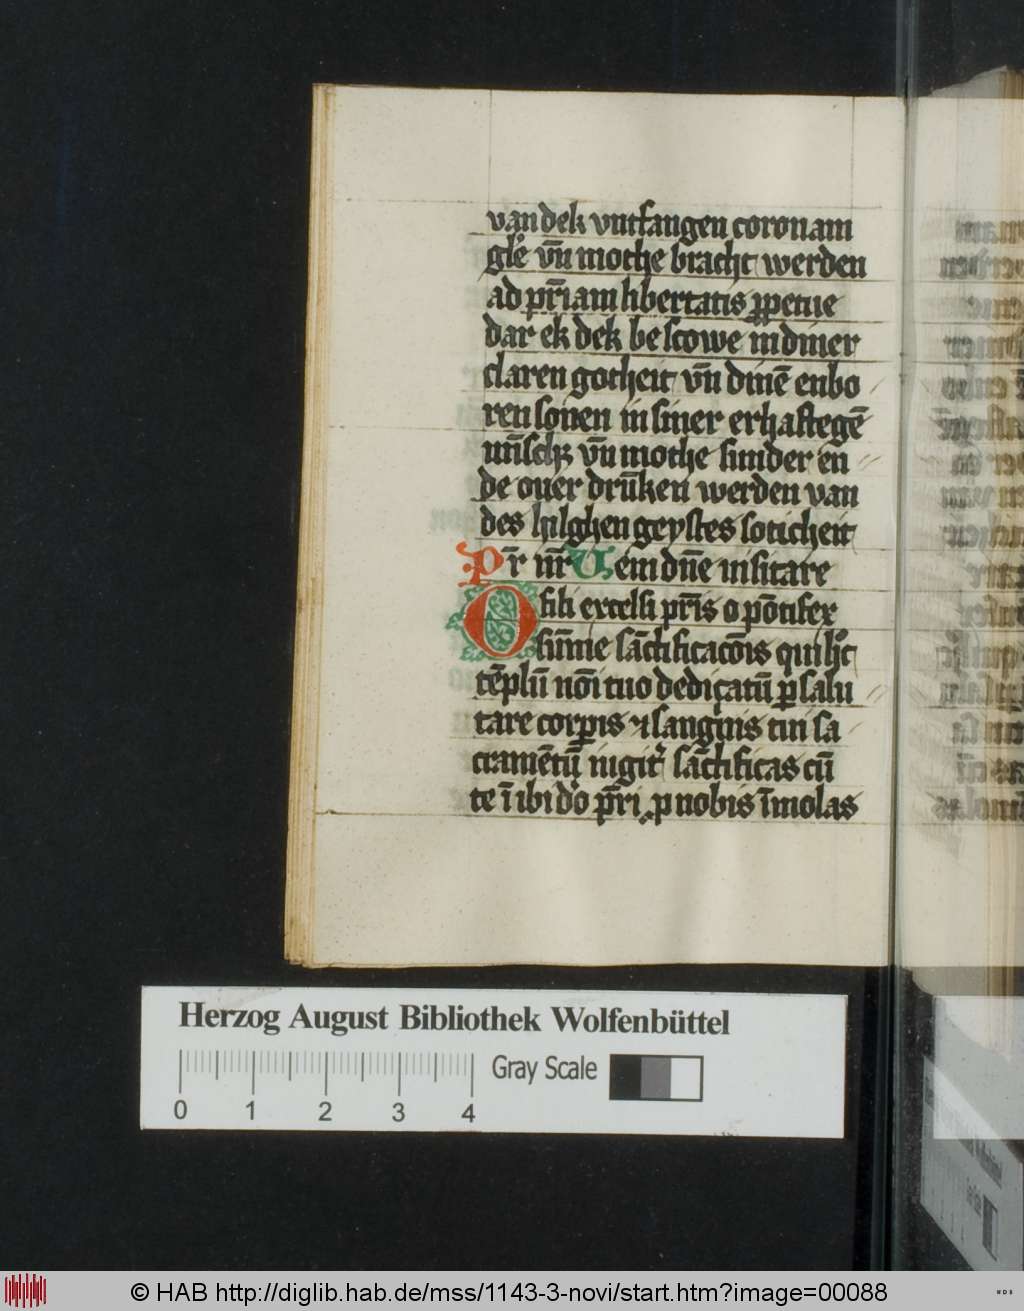 van dek vntfangen coronam
gl'e vn̄ mothe bracht werden
ad pr̄iam libertatis ꝑpetue
dar ek dek be scowe in diner
claren gotheit vn̄ dinē enbo
ren sonen in siner erhaftegē
vn̄ mothe sunder en
de ouer drūken werden van
des hilghen geystes soticheit
Pr̄ nr̄ Ueni dn̄e visitare
O fili excelsi pr̄is o pōtifex
sūme sāctificacōis qui
tēplū nōi tuo dedicatū ꝑ salu
tare corꝑis ⁊ sangnis tui sa
cramētū sāctificas cū
te ī ibi dō pr̄i p nobis īmolas
Herzog August Bibliothek Wolfenbüttel
Gray Scale
0 1 2 3 4
© HAB http://diglib.hab.de/mss/1143-3-novi/start.htm?image=00088